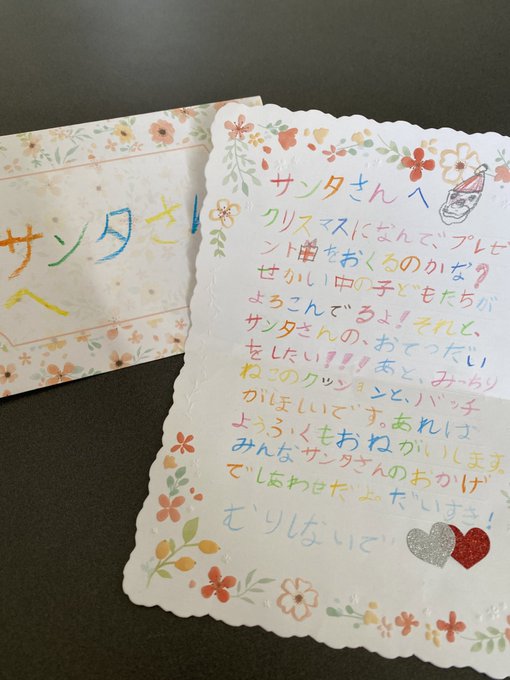 サンタさん
へ
サンタさん へ
クリスマスになんで、プレゼ
ントをおくるのかな?
せかい中の子どもたちが
よろこんでるよ!それと、
サンタさんの、おてつだい
をしたい!!!あと、みっちり
ねこのクッションと、バッチ
がほしいです。あれば
ようふくもおねがいします
みんなサンタさんのおかげ
でしあわせだよ。だいすき!
むりしないで